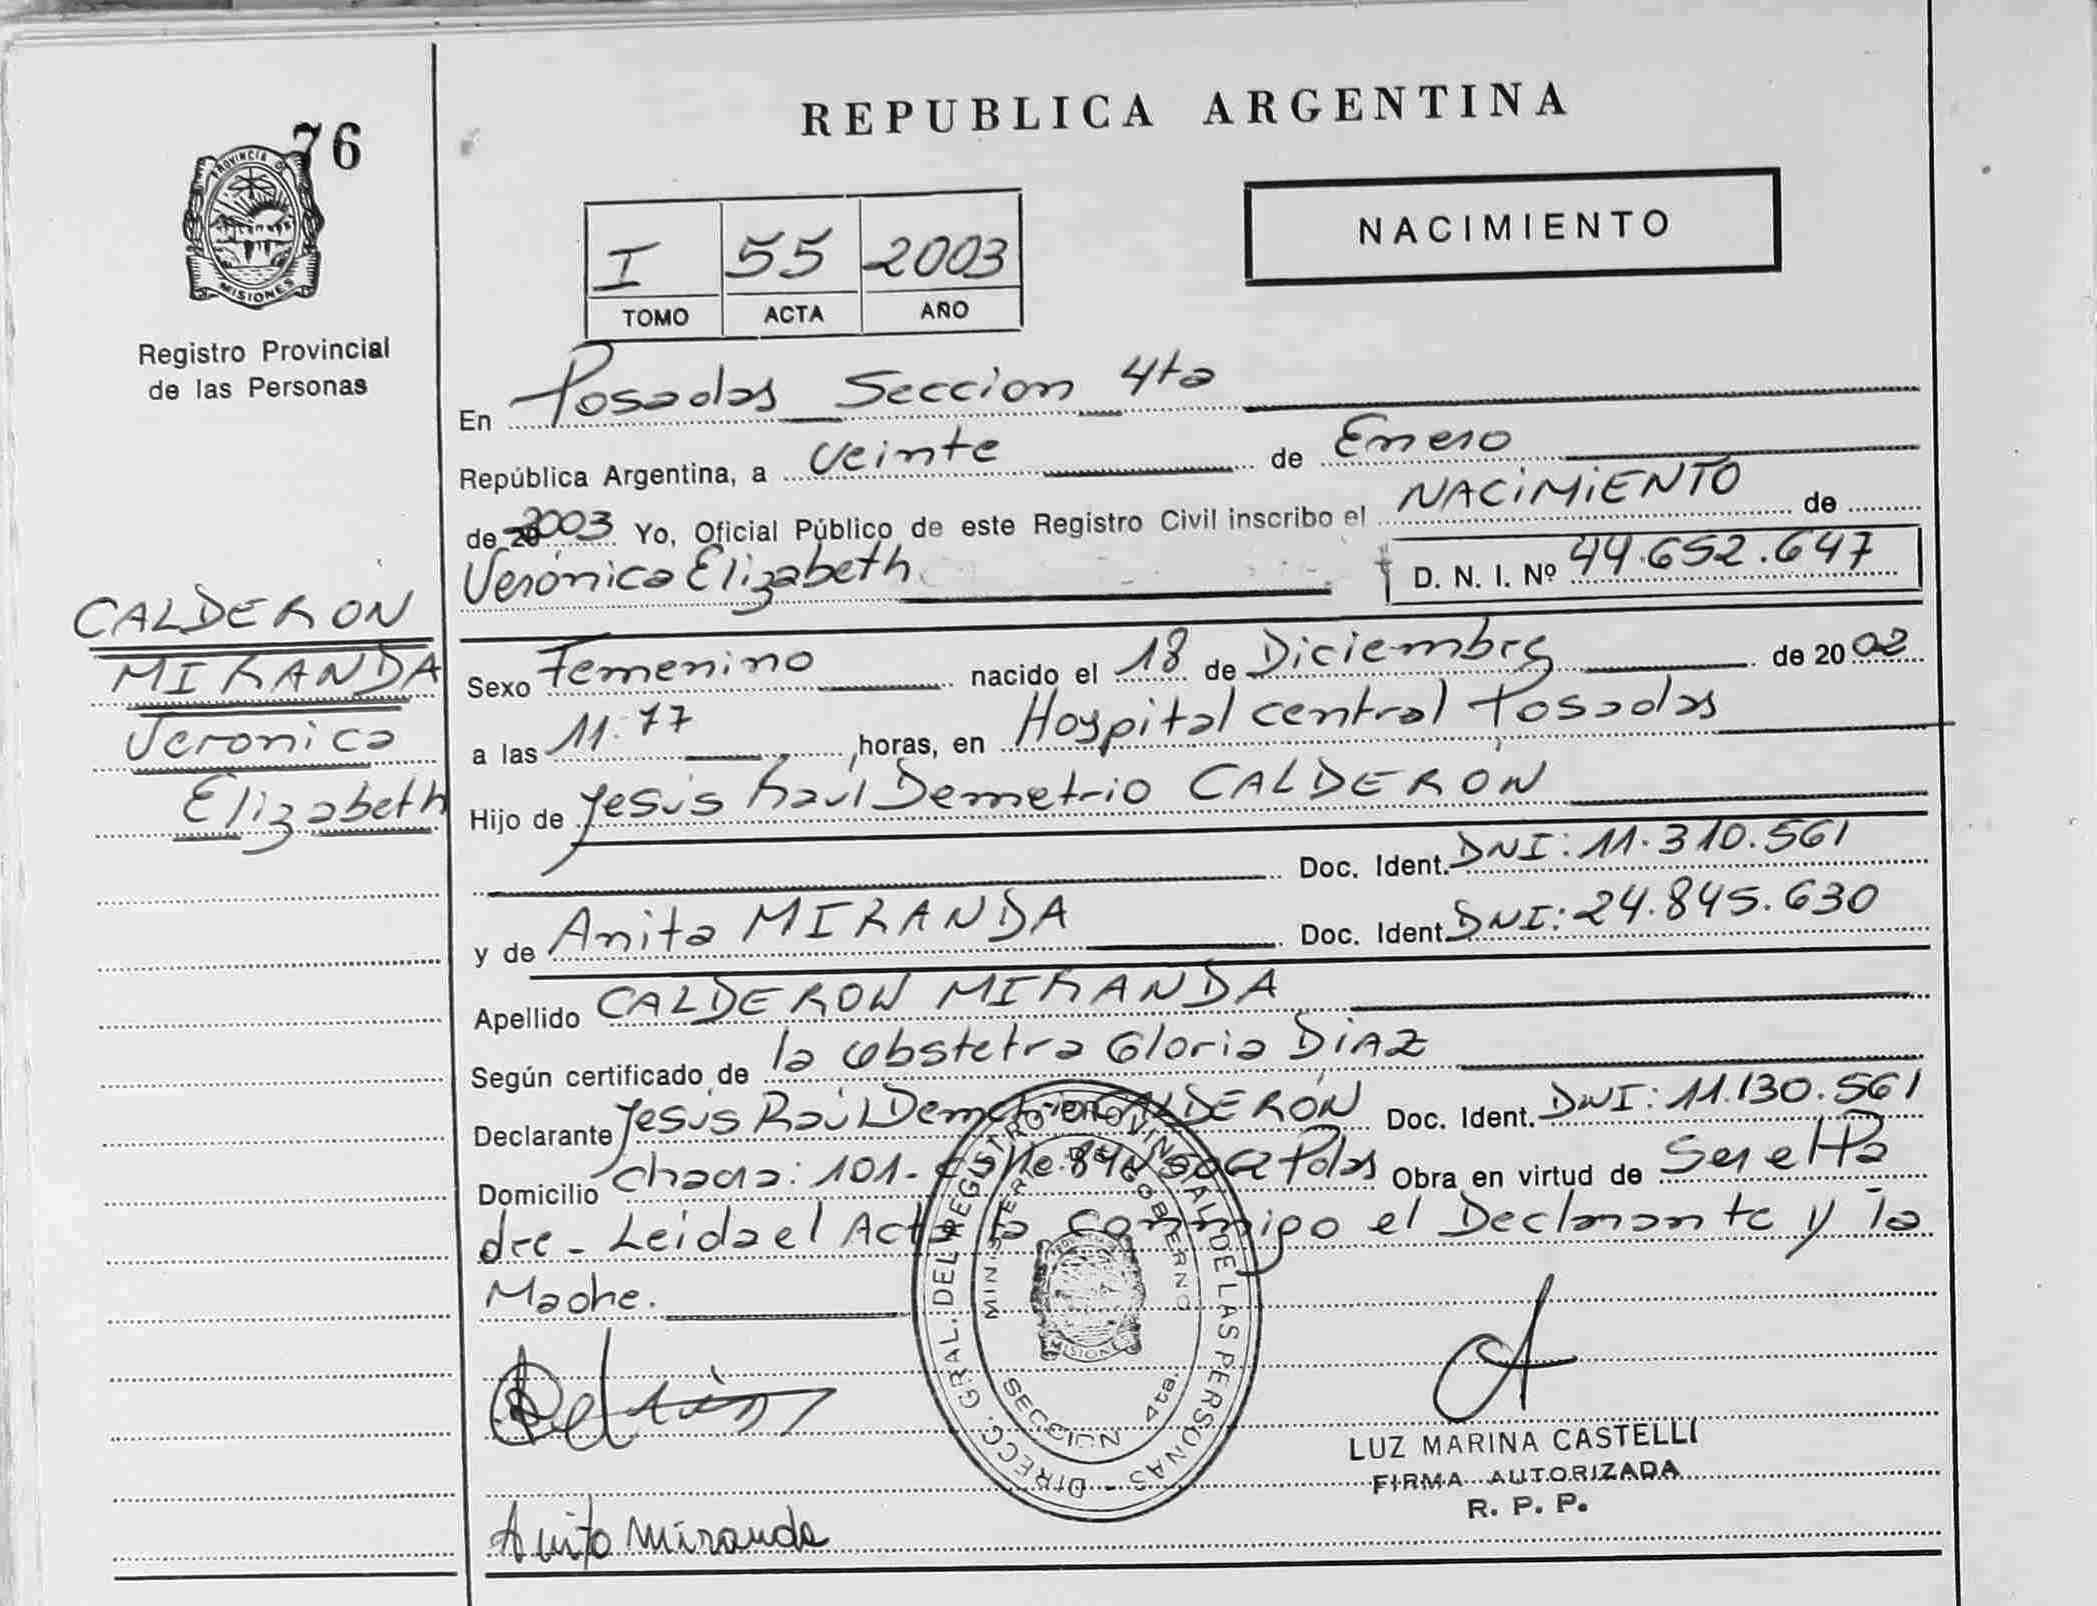 76
PROVINCIA DE
MISIONES
Registro Provincial
de las Personas
CALDERON
MIRANDA
Veronica
Elizabeth
REPUBLICA ARGENTINA
NACIMIENTO
I 55 2003
TOMO ACTA AÑO
En Posadas Seccion 4ta
República Argentina, a veinte de Enero
de 2003 Yo, Oficial Público de este Registro Civil inscribo el NACIMIENTO de
Verónica Elizabeth D. N. I. Nº 44.652.647
Sexo Femenino nacido el 18 de Diciembre de 2002
a las 11:77 horas, en Hospital central Posadas
Hijo de Jesús Raúl Demetrio CALDERON
Doc. Ident. DNI: 11.310.561
y de Anita MIRANDA Doc. Ident. DNI: 24.845.630
Apellido CALDERON MIRANDA
Según certificado de la obstetra Gloria DiAZ
Declarante Jesús Raúl Demetrio CALDERÓN Doc. Ident. DNI: 11.130.561
Domicilio chacra: 101. calle 84 Pdas Obra en virtud de Ser el Pa
dre - Leida el Acta la conmigo el Declarante y la
Madre.
DIRECC. GRAL. DEL REGISTRO PROVINCIAL DE LAS PERSONAS -
MINISTERIO DE GOBIERNO
MISIONES
SECCION 4ta.
LUZ MARINA CASTELLI
FIRMA AUTORIZADA
R. P. P.
Anita Miranda